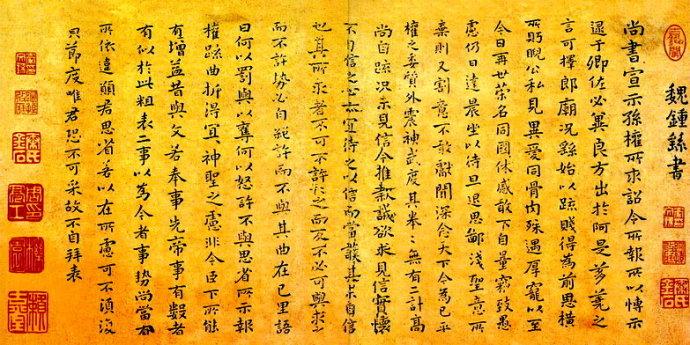 魏鍾繇書
尚書宣示孫權所求詔令所報所以博示
逮于卿佐必冀良方出於阿是芻蕘之
言可擇郎廟況繇始以疏賤得為前恩橫
所盻睨公私見異愛同骨肉殊遇厚寵以至
今日再世榮名同國休慼敢不自量竊致愚
慮仍日達晨坐以待旦退思鄙淺聖意所
棄則又割意不敢獻聞深念天下今為已平
權之委質外震神武度其拳々無有二計高
尚自疏況未見信今推款誠欲求見信實懷
不自信之心亦宜待之以信而當護其未自信
也其所求者不可不許許之而反不必可與求之
而不許勢必自絕許而不與其曲在己里語
曰何以罰與以奪何以怒許不與思省所示報
權疏曲折得宜宜神聖之慮非今臣下所能
有增益昔與文若奉事先帝事有數者
有似於此粗表二事以為今者事勢尚當有
所依違願君思省若以在所慮可不須復
貌節度唯君恐不可采故不自拜表